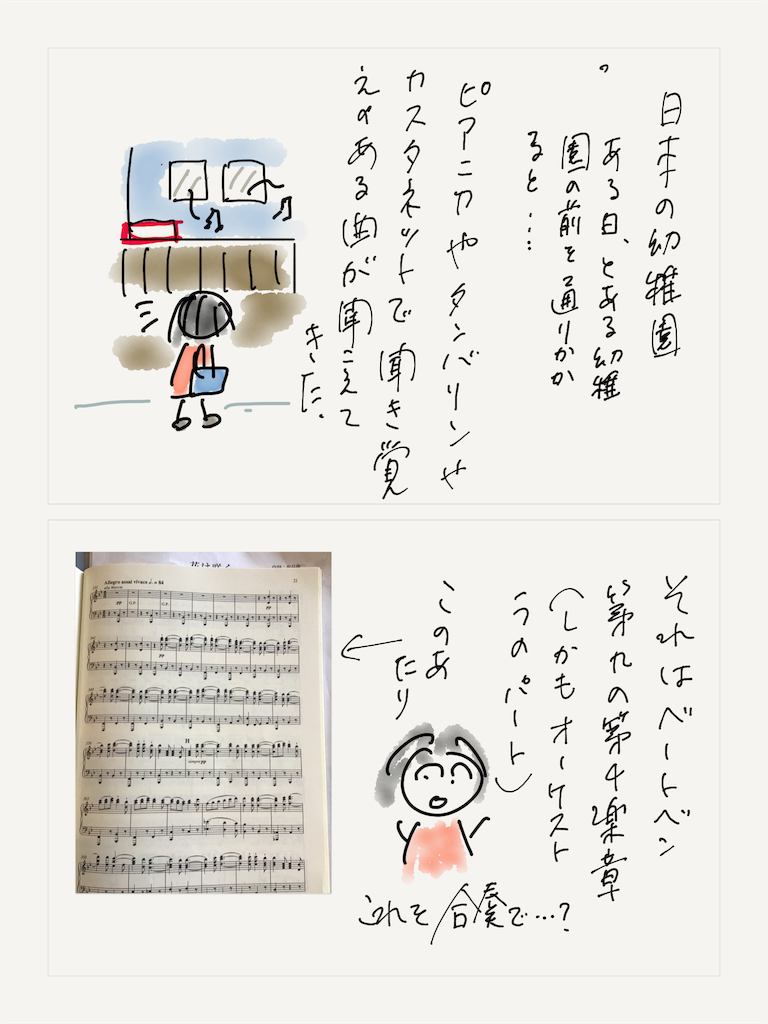 日本の幼稚園
。
ある日、とある幼稚
園の前を通りかか
ると…
ピアニカやタンバリンや
カスタネットで聞き覚
えのある曲が聞こえて
きた。
それはベートベン
第九の第4楽章
(しかもオーケスト
ラのパート)
このあ
たり
これを合奏で…?
花は咲く
Allegro assai vivace ♩. = 84
alla Marcia
21
pp
G.P.
pp
G.P.
pp
pp
H
sempre pp